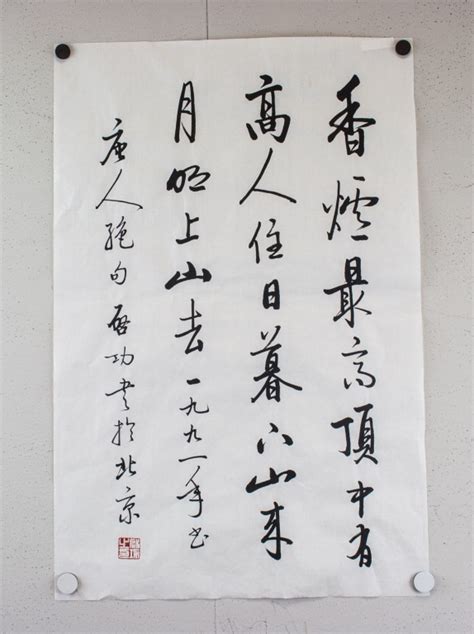 香爐最高頂中有
高人住日暮下山来
月明上山去一九九一年书
唐人絶句啟功书於北京